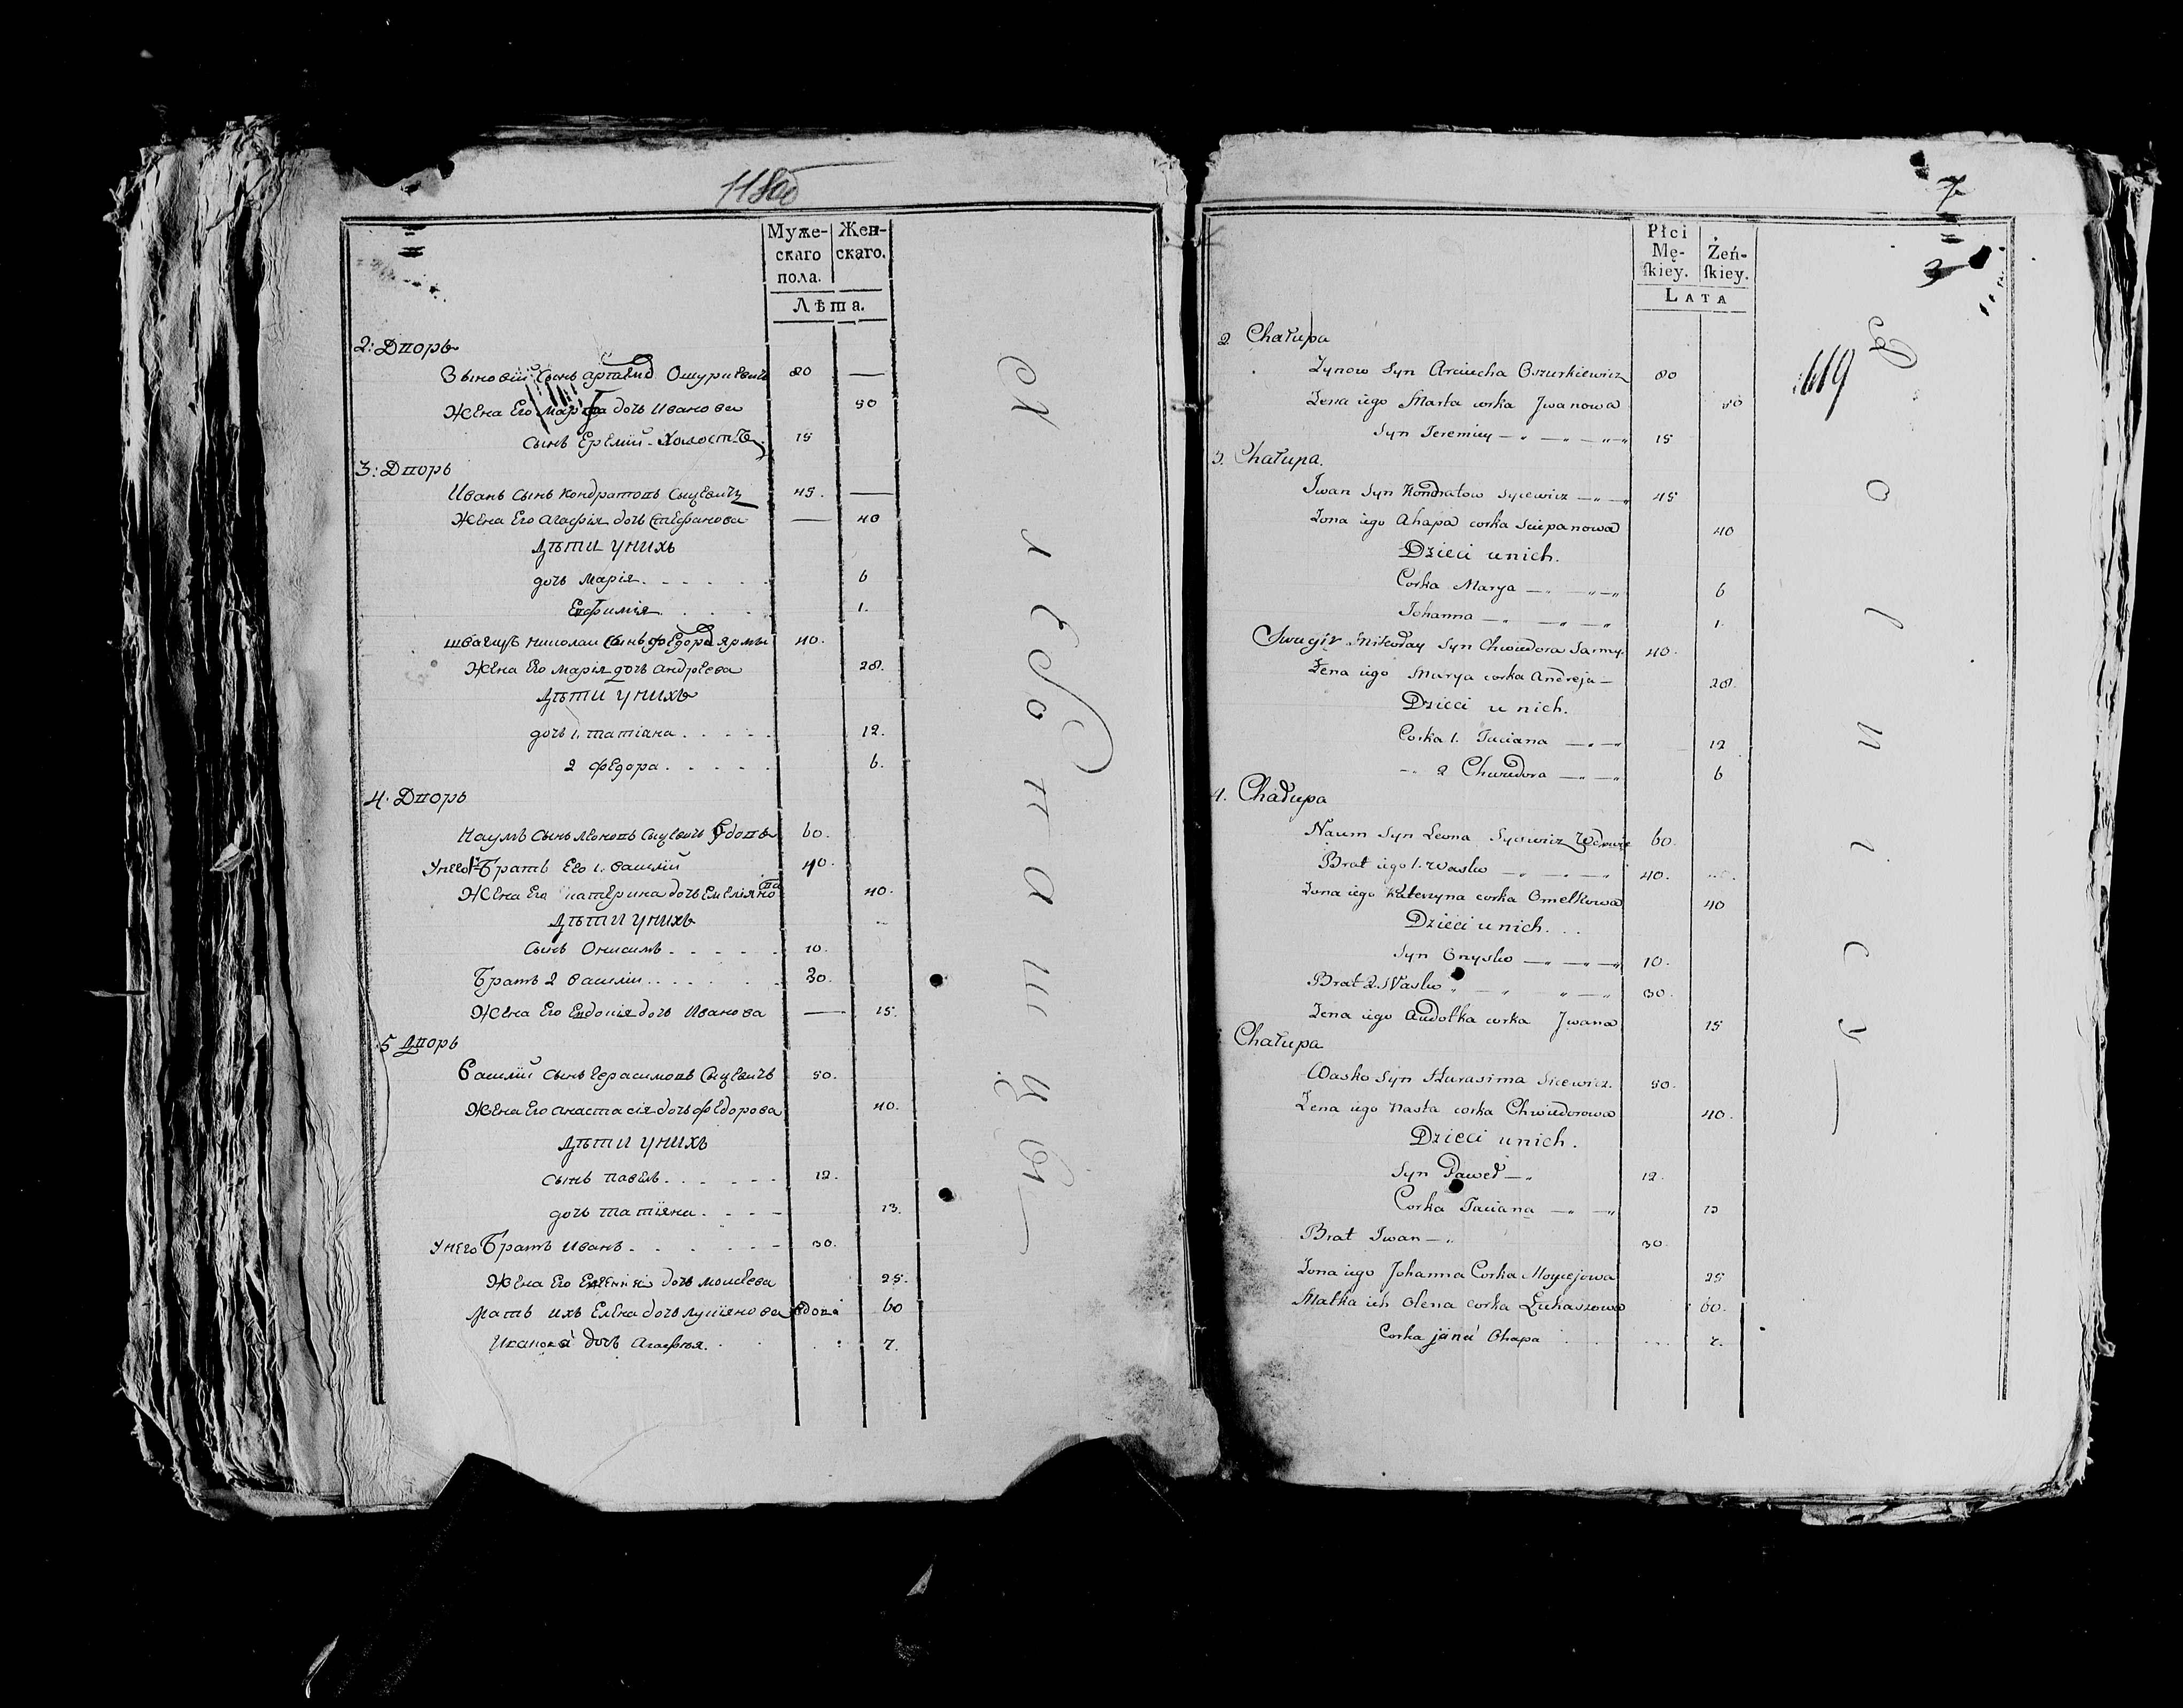 118об
Муже-
скаго
пола.
Жен-
скаго.
Лѣта.
2: Дворъ
Зыновій сынъ Артемѣ Ошуркевичъ 80 —
Жена Его Марфа дочь Иванова 50
Сынъ Еремій Холостъ 15
3: Дворъ
Иванъ сынъ Кондратовъ Сыцевичъ 45. —
Жена Его Агафія дочь Стефанова — 40
Дѣти унихъ
дочь Марія 6
Евфимія 1.
швагиръ Николаи Сынъ Федора Ярмы 40.
Жена Его Марія дочь Андреева 28.
Дѣти унихъ
дочь 1. татіана 12.
2 Федора 6.
4. Дворъ
Наумъ Сынъ Леоновъ Сыцевичъ Вдовъ 60.
Унего Братъ Его 1. Василій 40.
Жена Его Катерина дочь Емеліянова 40.
Дѣти унихъ
Сынъ Онисимъ 10.
Братъ 2 Василіи 30.
Жена Его Евдокія дочь Иванова — 15.
5 Дворъ
Василій Сынъ Герасимовъ Сыцевичъ 50.
Жена Его Анастасія дочь Федорова 40.
Дѣти унихъ
Сынъ Павелъ 12.
дочь татіяна 13.
Унего Братъ Иванъ 30.
Жена Его дочь Моисеева 25.
Мать ихъ Елена дочь Лукіянова вдова 60
дочь Агафія 7.
Хлебопашцы
7
Płci
Mę-
ſkiey.
Żeń-
ſkiey.
LATA
619
2 Chałupa
Zynow Syn Arciucha Oszurkiewicz 80
Zena iego Marta corka Jwanowa 50
Syn Jeremiey 15
3. Chałupa.
Iwan Syn Kondratow Sycewicz 45
Zona iego Ahapa corka Sciepanowa 40
Dzieci unich.
Corka Marya 6
Johanna 1.
Swagir Mikołay Syn Chwiedora Jarmy 40.
Zena iego Marya corka Andreja 28.
Dzieci u nich.
Corka 1. Taciana 12
2 Chwiedora 6
4. Chałupa
Naum Syn Leona Sycewicz Wdowiec 60.
Brat iego 1. Wasko 40.
Zona iego Katerzyna corka Omelkowa 40
Dzieci unich.
Syn Onysko 10.
Brat 2. Wasko 30.
Zena iego Audotka corka Jwana 15
Chałupa
Wasko Syn Harasima Sicewicz. 50.
Zena iego Nasta corka Chwiedorowa 40.
Dzieci unich.
Syn Paweł 12.
Corka Taciana 13
Brat Iwan 30
Zona iego Johanna Corka Moysejowa 25
Matka ich Olena corka Łukaszowa 60.
Corka Ohapa 7.
Rolnicy